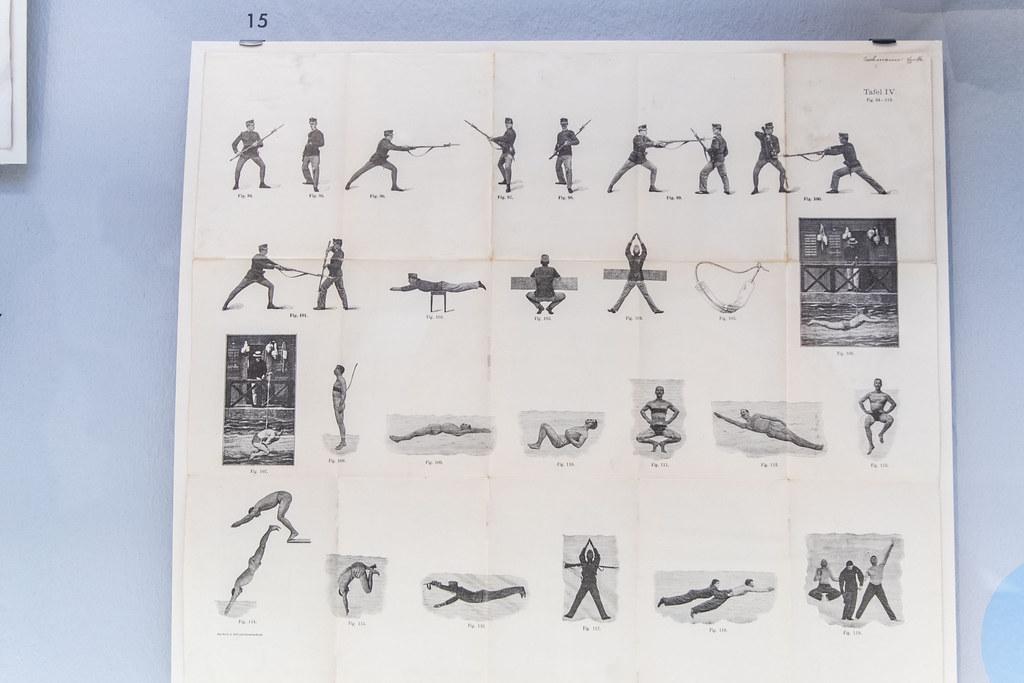 15
Tafel IV.
Fig. 94-119.
Fig. 94.
Fig. 95.
Fig. 96.
Fig. 97.
Fig. 98.
Fig. 99.
Fig. 100.
Fig. 101.
Fig. 102.
Fig. 103.
Fig. 104.
Fig. 105.
Fig. 106.
Fig. 107.
Fig. 108.
Fig. 109.
Fig. 110.
Fig. 111.
Fig. 112.
Fig. 113.
Fig. 114.
Fig. 115.
Fig. 116.
Fig. 117.
Fig. 118.
Fig. 119.